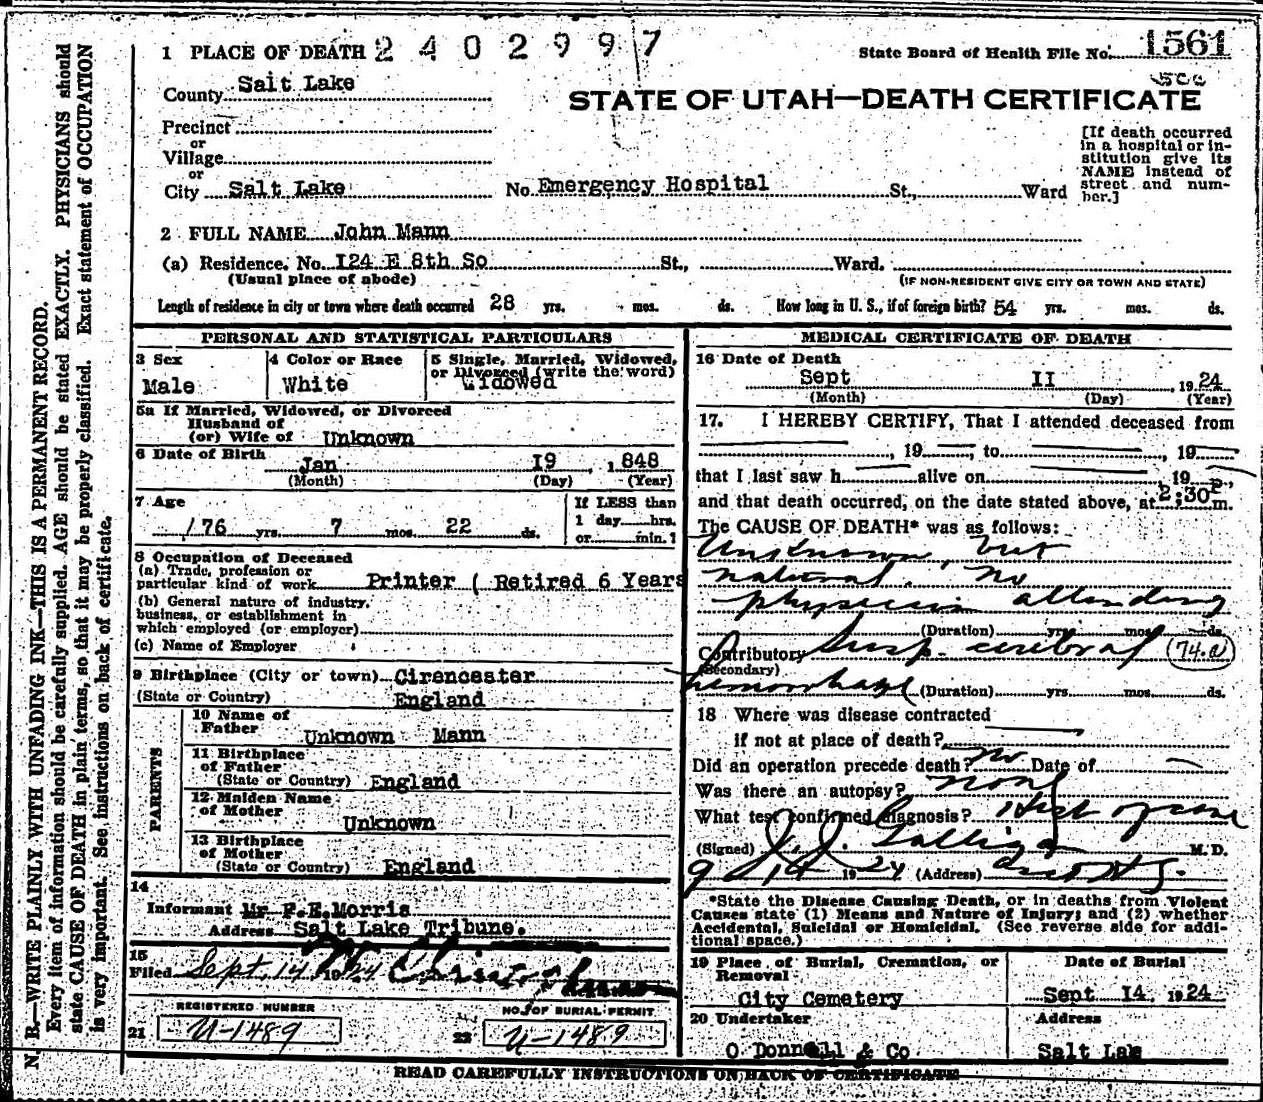 1 PLACE OF DEATH 2402997
State Board of Health File No. 1561
County Salt Lake
STATE OF UTAH—DEATH CERTIFICATE
Precinct
or
Village
or
City Salt Lake No. Emergency Hospital St., Ward
[If death occurred
in a hospital or in-
stitution give its
NAME instead of
street and num-
ber.]
2 FULL NAME John Mann
(a) Residence. No. I24 E 8th So St., Ward.
(Usual place of abode)
(IF NON-RESIDENT GIVE CITY OR TOWN AND STATE)
Length of residence in city or town where death occurred 28 yrs. mos. ds. How long in U. S., if of foreign birth? 54 yrs. mos. ds.
PERSONAL AND STATISTICAL PARTICULARS
3 Sex
Male
4 Color or Race
White
5 Single, Married, Widowed,
or Divorced (write the word)
Widowed
5a If Married, Widowed, or Divorced
Husband of
(or) Wife of Unknown
6 Date of Birth
Jan I9, 1848
(Month) (Day) (Year)
7 Age
76 yrs. 7 mos. 22 ds.
If LESS than
1 day hrs.
or min.?
8 Occupation of Deceased
(a) Trade, profession or
particular kind of work Printer ( Retired 6 Years
(b) General nature of industry,
business, or establishment in
which employed (or employer)
(c) Name of Employer
9 Birthplace (City or town) Cirencester
(State or Country) England
PARENTS
10 Name of
Father Unknown Mann
11 Birthplace
of Father
(State or Country) England
12 Maiden Name
of Mother
Unknown
13 Birthplace
of Mother
(State or Country) England
14
Informant Mr F.E.Morris
Address Salt Lake Tribune.
15
Filed Sept. 14 1924
REGISTERED NUMBER
21 U-1489
NO. OF BURIAL PERMIT
22 U-1489
MEDICAL CERTIFICATE OF DEATH
16 Date of Death
Sept II, 1924
(Month) (Day) (Year)
17. I HEREBY CERTIFY, That I attended deceased from
, 19 , to , 19
that I last saw h alive on , 19 ,
and that death occurred, on the date stated above, at 2:30P m.
The CAUSE OF DEATH* was as follows:
Unknown, but
natural. No
physician attending
(Duration) yrs. mos. ds.
Contributory Susp. cerebral (74.a)
(Secondary)
hemorrhage (Duration) yrs. mos. ds.
18 Where was disease contracted
if not at place of death?
Did an operation precede death? no Date of
Was there an autopsy? none
What test confirmed diagnosis? Hist of case
(Signed) M. D.
9 14 1924 (Address)
*State the Disease Causing Death, or in deaths from Violent
Causes state (1) Means and Nature of Injury; and (2) whether
Accidental, Suicidal or Homicidal. (See reverse side for addi-
tional space.)
19 Place of Burial, Cremation, or
Removal
City Cemetery
Date of Burial
Sept I4, 1924
20 Undertaker
O Donnell & Co
Address
Salt Lak
READ CAREFULLY INSTRUCTIONS ON BACK OF CERTIFICATE
N. B.—WRITE PLAINLY WITH UNFADING INK—THIS IS A PERMANENT RECORD.
Every item of information should be carefully supplied. AGE should be stated EXACTLY. PHYSICIANS should
state CAUSE OF DEATH in plain terms, so that it may be properly classified. Exact statement of OCCUPATION
is very important. See instructions on back of certificate.